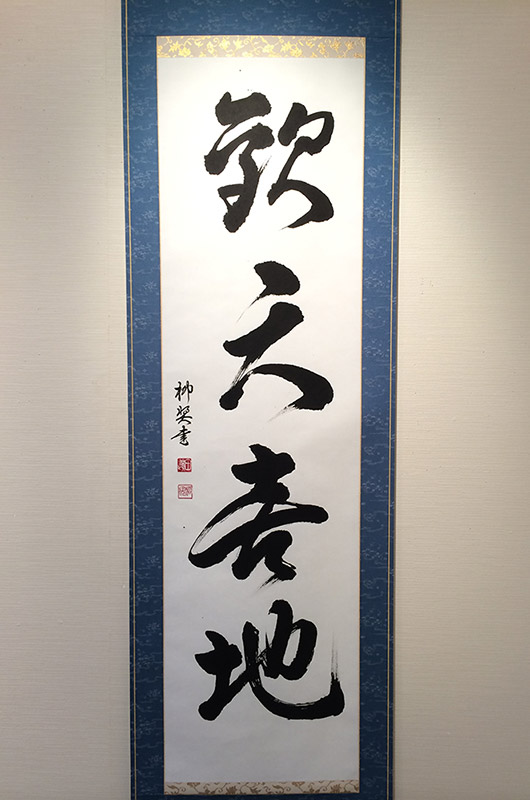 歓天喜地
柳奨書